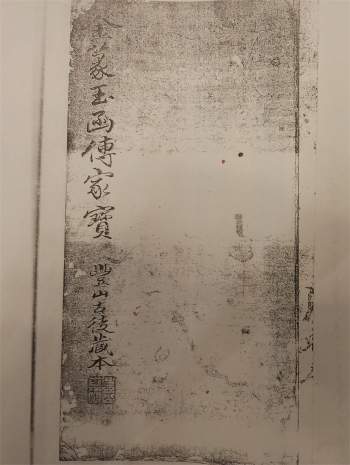 金篆玉函傳家寶
豐山古後藏本